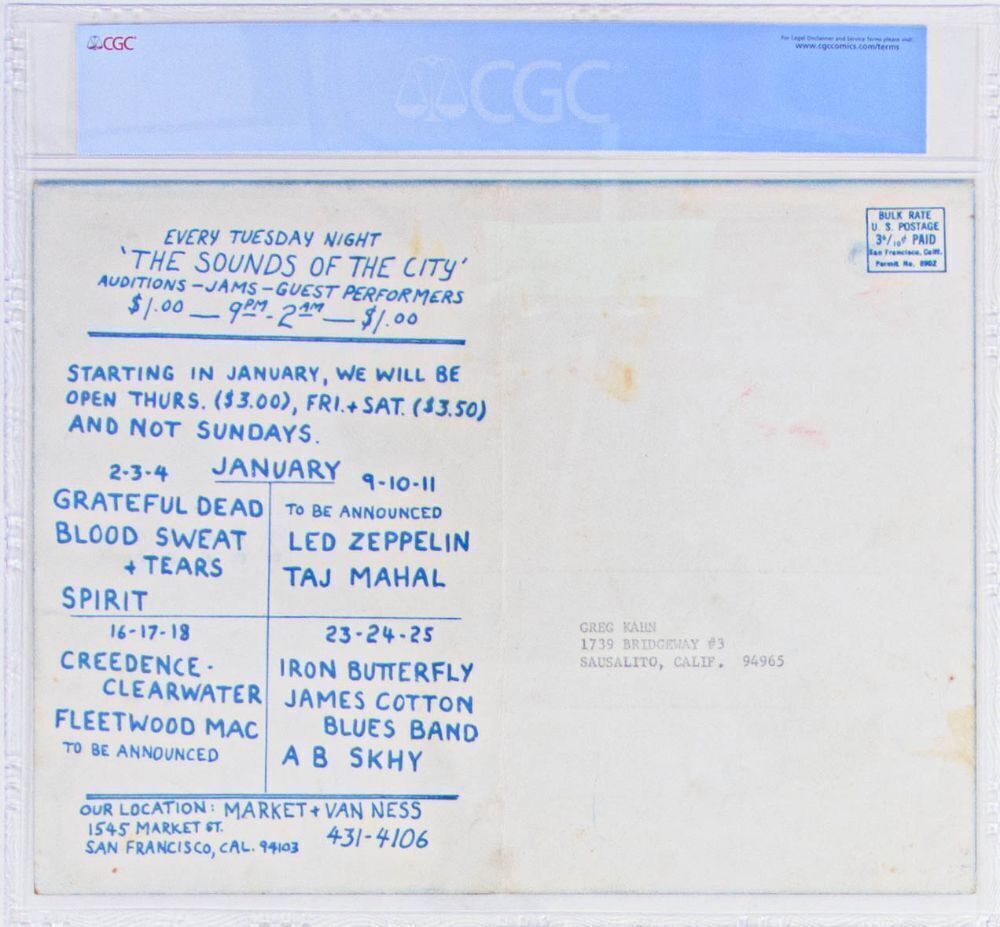 CGC
For Legal Disclaimer and Service Terms please visit:
www.cgccomics.com/terms
CGC
EVERY TUESDAY NIGHT
'THE SOUNDS OF THE CITY'
AUDITIONS - JAMS - GUEST PERFORMERS
$1.00 — 9PM - 2AM — $1.00
STARTING IN JANUARY, WE WILL BE
OPEN THURS. ($3.00), FRI. + SAT. ($3.50)
AND NOT SUNDAYS.
JANUARY
2-3-4
GRATEFUL DEAD
BLOOD SWEAT
+ TEARS
SPIRIT
9-10-11
TO BE ANNOUNCED
LED ZEPPELIN
TAJ MAHAL
16-17-18
CREEDENCE -
CLEARWATER
FLEETWOOD MAC
TO BE ANNOUNCED
23-24-25
IRON BUTTERFLY
JAMES COTTON
BLUES BAND
A B SKHY
OUR LOCATION: MARKET + VAN NESS
1545 MARKET ST.
SAN FRANCISCO, CAL. 94103
431-4106
BULK RATE
U. S. POSTAGE
PAID
San Francisco, Calif.
Permit No. 8902
GREG KAHN
1739 BRIDGEWAY #3
SAUSALITO, CALIF. 94965